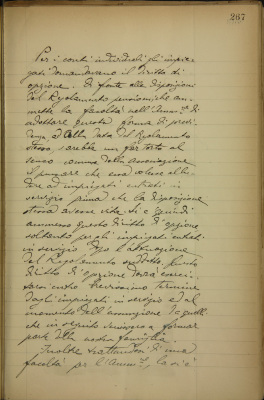 267
Per i conti individuali gli impie-
gati domandavano il diritto di
opzione. Di fronte alla disposizione
del Regolamento pensioni che am-
mette la facoltà nell'Amm.ne di
adottare questa forma di previ-
denza alla data del Regolamento
stesso, sarebbe un far torto al
senso comune della Associazione
il pensare che essa volesse allu-
dere ad impiegati entrati in
servizio prima che la disposizione
stessa avesse vita. Si è quindi
ammesso questo diritto d'opzione
soltanto per gli impiegati entrati
in servizio dopo l'attuazione
del Regolamento suddetto, questo
diritto d'opzione dovrà eserci-
tarsi entro brevissimo termine
dagli impiegati in servizio ed al
momento dell'assunzione da quelli
che in seguito venissero a formar
parte della nostra famiglia.
Inoltre trattandosi di una
facoltà per l'Amm.ne,